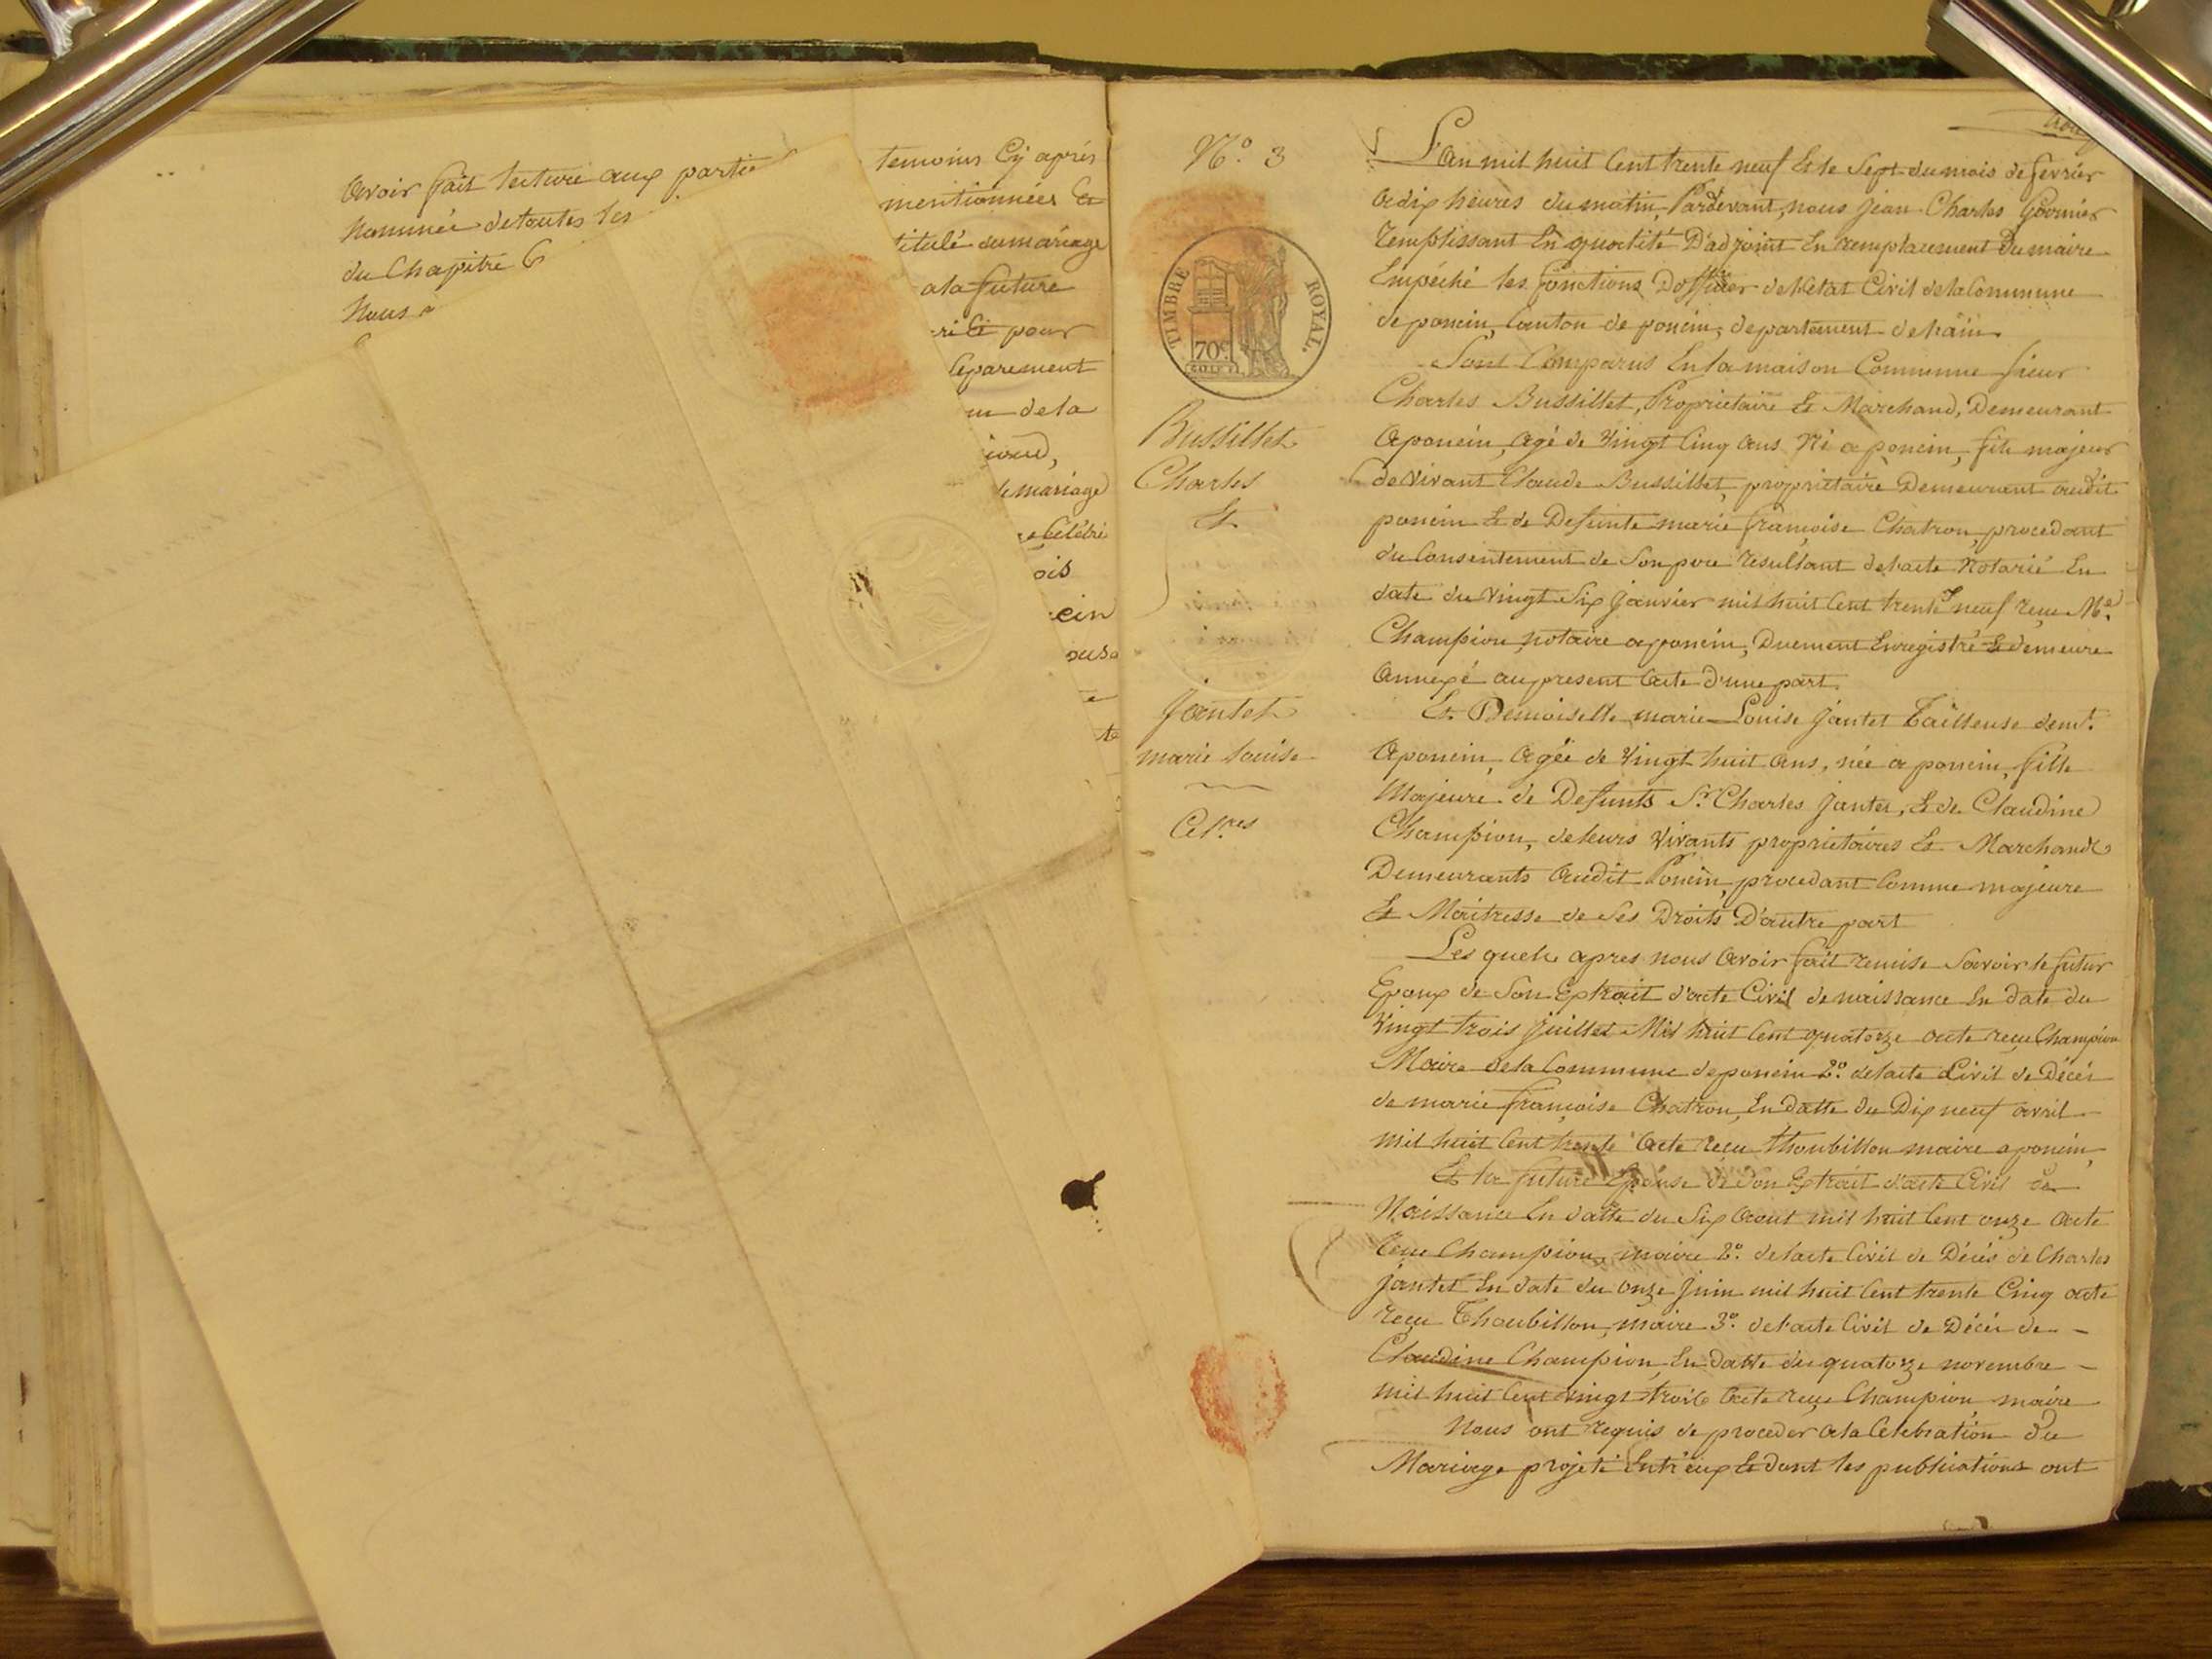 Avoir fait lecture aux partie
Nommée de toutes les
du Chapitre 6
Nous a
temoins Cy après
mentionnées Et
titulé du mariage
a la future
ri Et pour
separement
de la
le mariage
Célébré
ois
cin
N.º 3
TIMBRE ROYAL.
70c
Bussillet
Charles
Et
Jantet
marie Louise
L'an mil huit Cent trente neuf Et le Sept du mois de fevrier
a dix heures du matin, Pardevant nous Jean Charles
remplissant En qualité D'adjoint En remplacement Du maire
Empéché les fonctions D'officier de l'Etat Civil de la Commune
de poncin, Canton de poncin, departement de l'ain.
Sont Comparus En la maison Commune sieur
Charles Bussillet, Proprietaire Et Marchand, Demeurant
a poncin, agé de Vingt Cinq ans Né a poncin, fils majeur
de Vivant Claude Bussillet, propriétaire Demeurant audit
poncin Et de Defunte marie françoise Chatron, procedant
du Consentement de Son pere resultant de l'acte Notarié En
date du Vingt Six Janvier mil huit Cent trente neuf reçu Me.
Champion notaire a poncin, Duement Enregistré Et demeure
Annexé au present acte d'une part.
Et Demoiselle marie Louise Jantet Tailleuse demt.
a poncin, agée de Vingt huit ans, née a poncin, fille
Majeure de Defunts Sr. Charles Jantet, Et de Claudine
Champion, de leurs Vivants proprietaires Et Marchands
Demeurants audit Poncin, procedant Comme majeure
Et Maitresse de Ses Droits D'autre part
Les quels apres nous avoir fait remise Savoir le futur
Epoux de Son Extrait d'acte Civil de naissance En date du
Vingt trois Juillet Mil huit Cent quatorze acte reçu Champion
Maire de la Commune de poncin 2º. de l'acte Civil de Décés
de marie françoise Chatron, En datte du Dix neuf avril
mil huit Cent trente acte reçu Thoubillon maire a poncin,
Et la future Epouse de Son Extrait d'acte Civil de
Naissance En datte du Six aout mil huit Cent onze acte
reçu Champion, maire 2º. de l'acte Civil de Décés de Charles
Jantet En date du onze Juin mil huit Cent trente Cinq acte
reçu Thoubillon, maire 3º. de l'acte Civil de Décés de
Claudine Champion, En datte du quatorze novembre
mil huit Cent vingt trois acte reçu Champion, maire
Nous ont requis de proceder a la Celebration du
Mariage projeté Entr'eux Et dont les publications ont